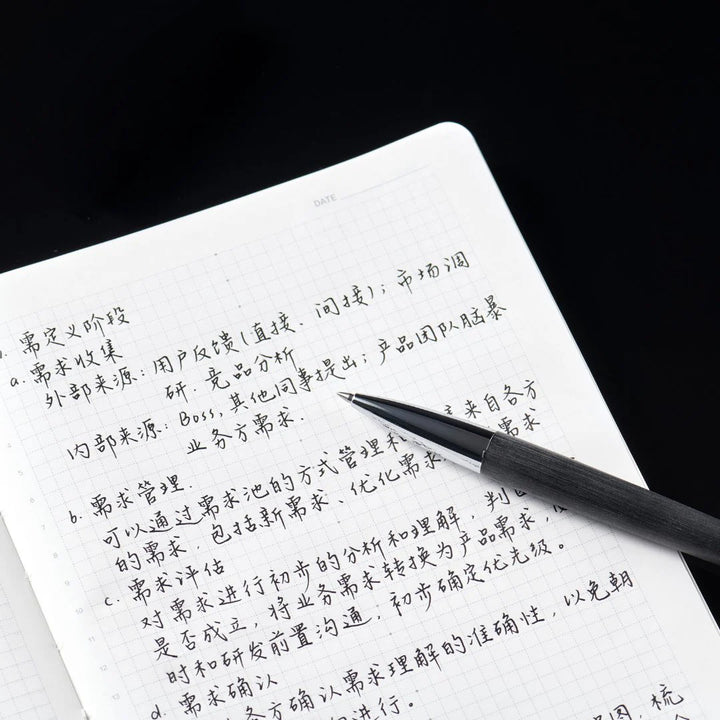 DATE
需定义阶段
a. 需求收集
外部来源：用户反馈(直接、间接)；市场调
研．竞品分析
内部来源：Boss，其他同事提出；产品团队脑暴
业务方需求．
b. 需求管理．
可以通过需求池的方式管理和 来自各方
的需求，包括新需求、优化需求 需求
c. 需求评估
对需求进行初步的分析和理解，判
是否成立，将业务需求转换为产品需求，
时和研发前置沟通，初步确定优先级。
d. 需求确认
各方确认需求理解的准确性，以免朝
进行。
图，梳